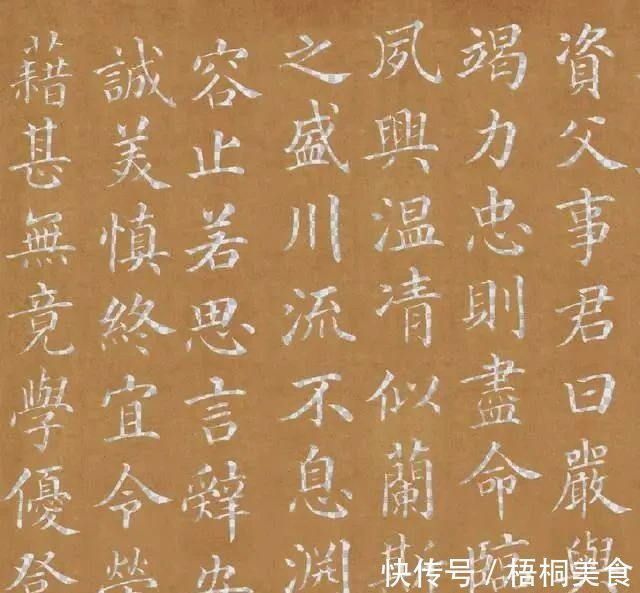 資父事君曰嚴與
竭力忠則盡命臨
夙興温凊似蘭斯
之盛川流不息渊
容止若思言辭安
誠美慎終宜令榮
藉甚無竟學優登
快传号 / 梧桐美食